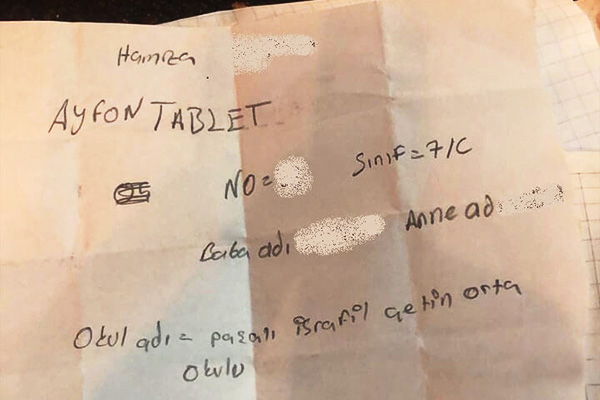 Hamza
AYFON TABLET
NO= Sınıf=7/C
Baba adı Anne ad
Okul adı= pazarı israfil çetin orta
okulu